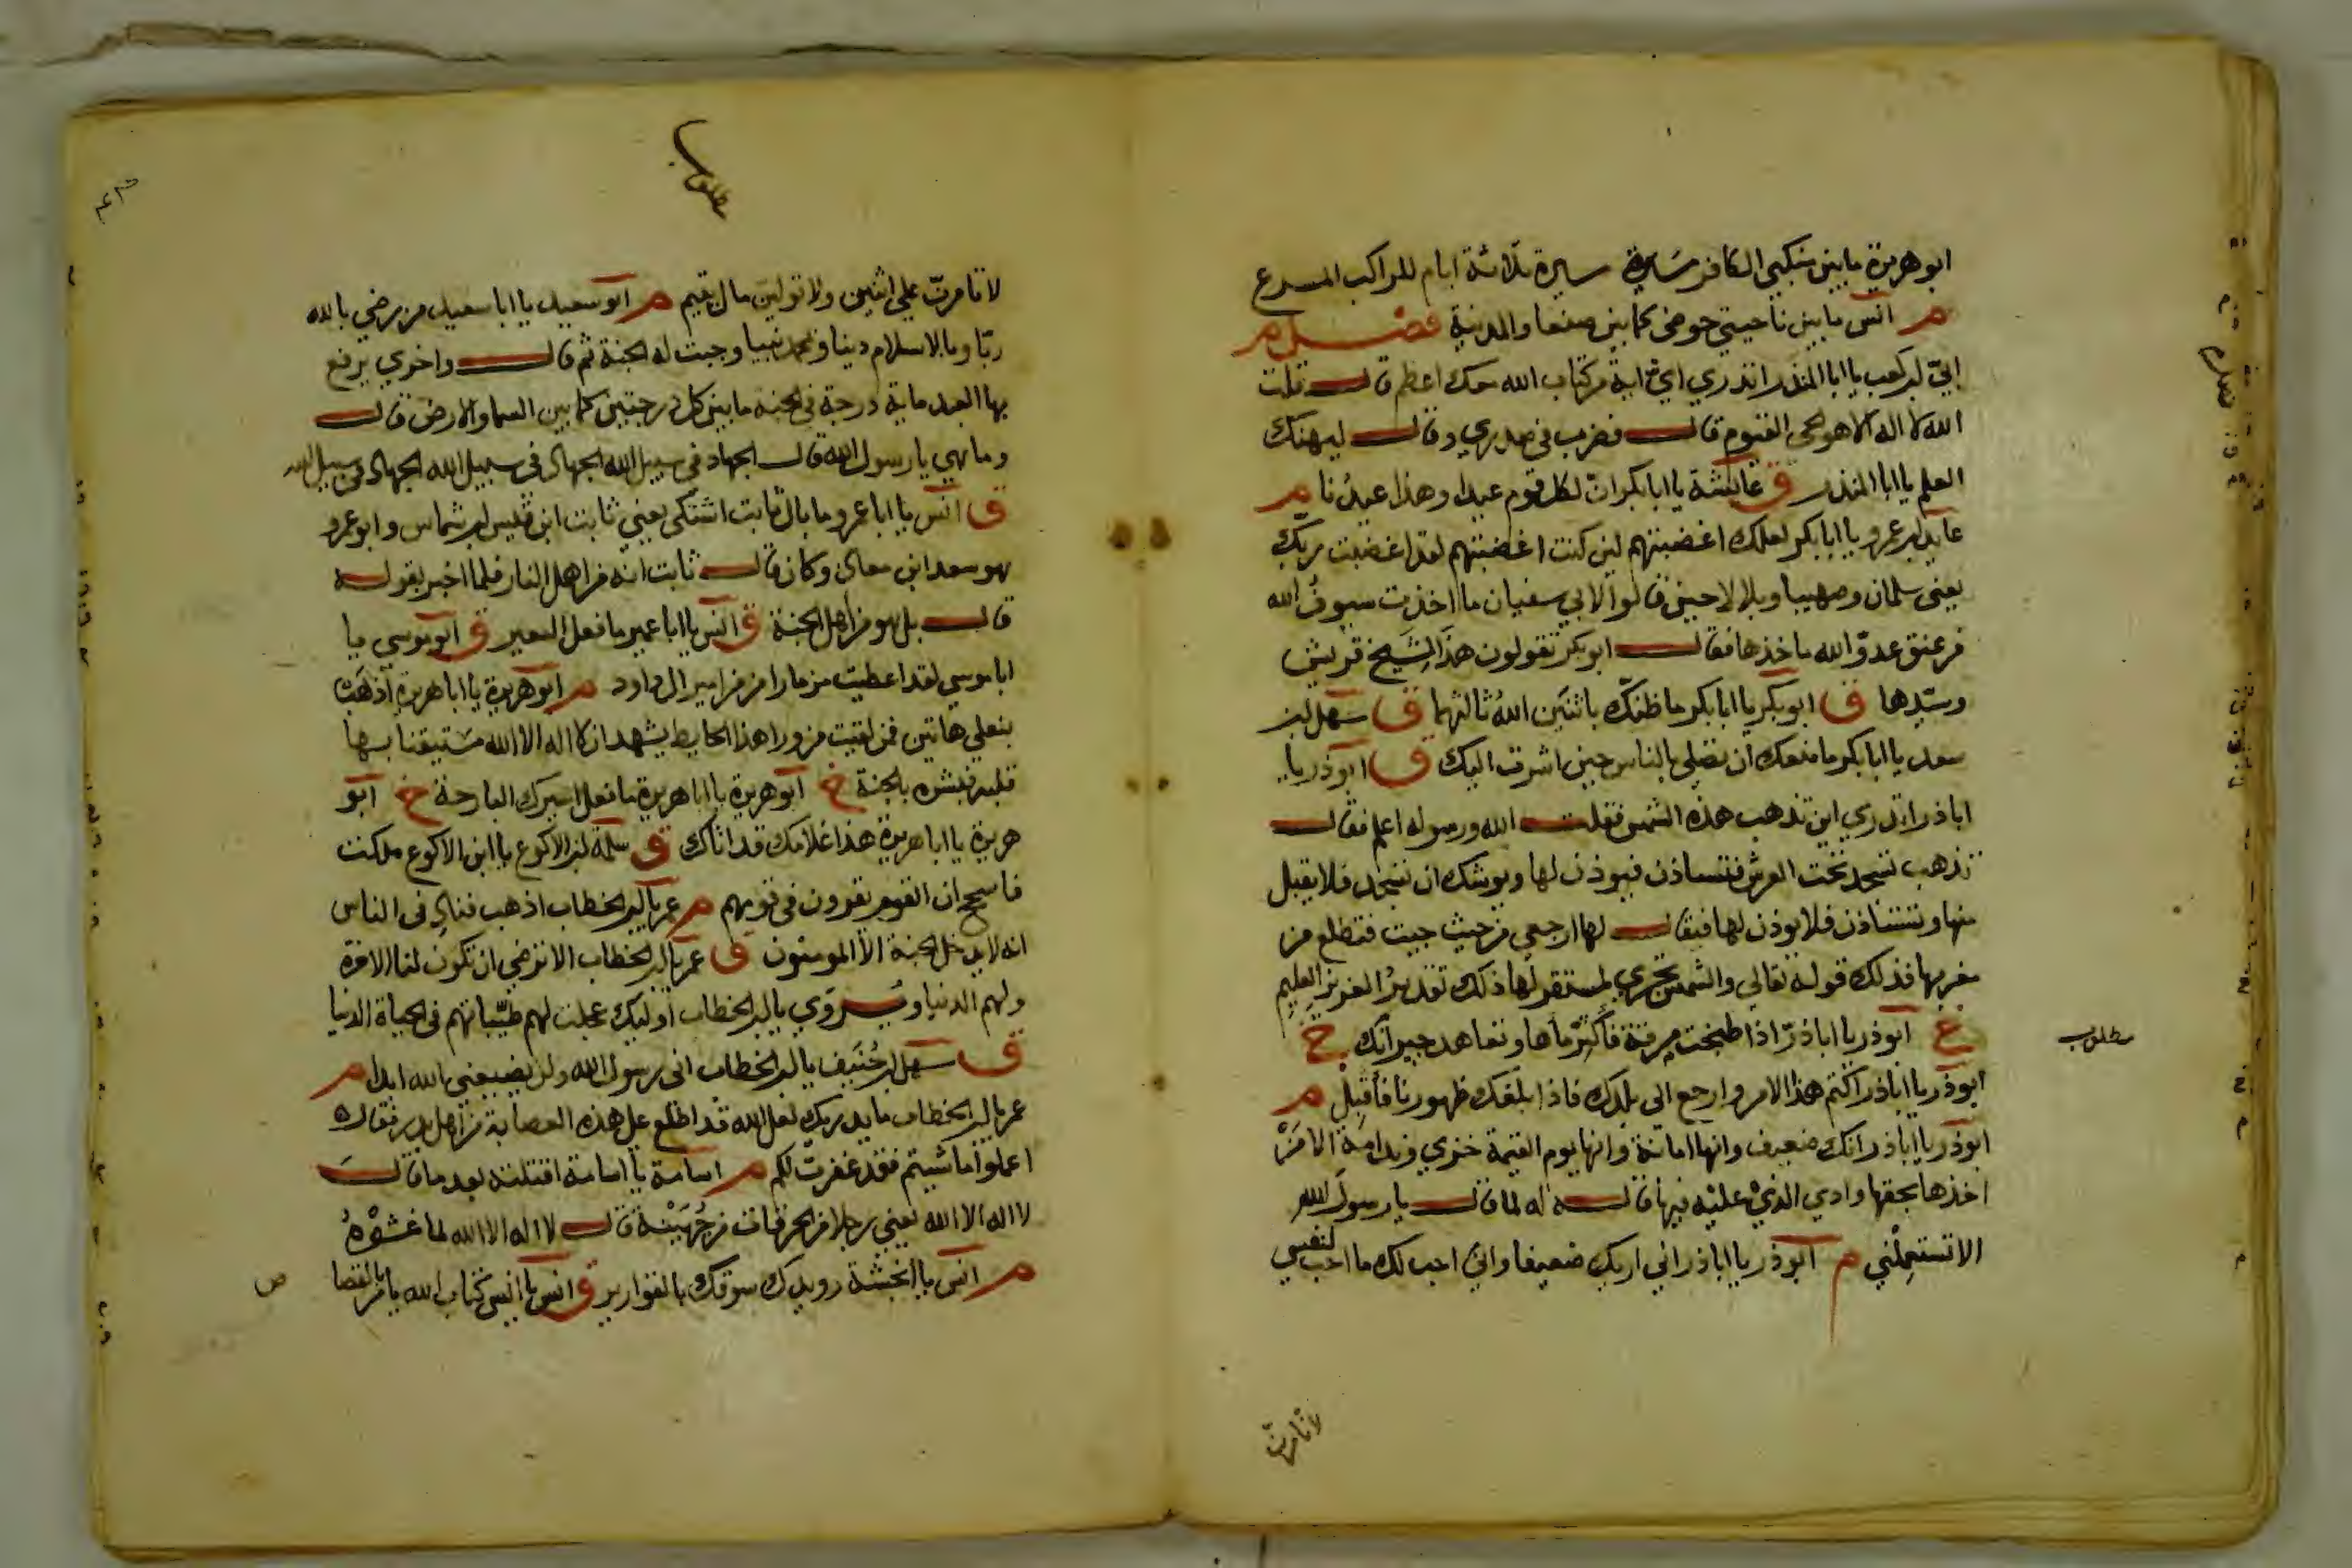 ابو هريرة ما بين منكبي الكافر مسيرة سيرة ثلاثة ايام للراكب المسرع
م انس ما بين ناحيتي حوضي كما بين صنعا والمدينة فصل م
ابي بن كعب يا ابا المنذر اتدري اي اية من كتاب الله معك اعظم قال قلت
الله لا اله الا هو الحي القيوم قال فضرب في صدري وقال ليهنك
العلم يا ابا المنذر ق عايشة يا ابا بكر ان لكل قوم عيدا وهذا عيدنا م
عايذ بن عمرو يا ابا بكر لعلك اغضبتهم لين كنت اغضبتهم لقد اغضبت ربك
يعني سلمان وصهيبا وبلالا حين قالوا لابي سفيان ما اخذت سيوف الله
من عنق عدو الله ماخذها فقال ابو بكر تقولون هذا لشيخ قريش
وسيدها ق ابو بكر يا ابا بكر ما ظنك باثنين الله ثالثهما ق سهل بن
سعد يا ابا بكر ما منعك ان تصلي بالناس حين اشرت اليك ق ابو ذر يا
اباذر اتدري اين تذهب هذه الشمس فقلت الله ورسوله اعلم فقال
تذهب تسجد تحت العرش فتستاذن فيوذن لها ويوشك ان تسجد فلا يقبل
منها وتستاذن فلا يوذن لها فيقال لها ارجعي من حيث جيت فتطلع من
مغربها فذلك قوله تعالي والشمس تجري لمستقر لها ذلك تقدير العزيز العليم
خ ابو ذر يا اباذر اذا طبخت مرقة فاكثر ماها وتعاهد جيرانك خ
مطلوب
ابو ذر يا اباذر اكتم هذا الامر وارجع الى بلدك فاذا بلغك ظهورنا فاقبل م
ابو ذر يا اباذر انك ضعيف وانها امانة وانها يوم القيمة خزي وندامة الا من
اخذها بحقها وادي الذي عليه فيها قاله له لما قال يا رسول الله
الا تستعملني م ابو ذر يا اباذر اني اريك ضعيفا واني احب لك ما احب لنفسي
لا تامرن
مطلوب
لا تامرن علي اثنين ولا تولين مال يتيم م ابو سعيد يا ابا سعيد من رضي بالله
ربا وبالاسلام دينا وبمحمد نبيا وجبت له الجنة ثم قال واخري يرفع
بها العبد ماية درجة في الجنة ما بين كل درجتين كما بين السما والارض قال
وما هي يا رسول الله قال الجهاد في سبيل الله الجهاد في سبيل الله الجهاد في سبيل الله
ق انس يا ابا عمرو ما بال ثابت اشتكى يعني ثابت ابن قيس بن شماس وابو عمرو
هو سعد ابن معاذ وكان قال ثابت انه من اهل النار فلما اخبر بقوله
قال بل هو من اهل الجنة ق انس يا ابا عمير ما فعل النغير ق ابو موسي يا
ابا موسي لقد اعطيت مزمارا من مزامير ال داود م ابو هريرة يا ابا هريرة اذهب
بنعلي هاتين فمن لقيت من ورا هذا الحايط يشهد ان لا اله الا الله مستيقنا بها
قلبه فبشره بالجنة خ ابو هريرة يا ابا هريرة ما فعل اسيرك البارحة خ ابو
هريرة يا ابا هريرة هذا غلامك قد اتاك ق سلمة بن الاكوع يا ابن الاكوع ملكت
فاسجح ان القوم يقرون في قومهم م عمر يا ابن الخطاب اذهب فناد في الناس
انه لا يدخل الجنة الا المومنون ق عمر يا ابن الخطاب الا ترضي ان تكون لنا الاخرة
ولهم الدنيا ويروي يا ابن الخطاب اوليك عجلت لهم طيباتهم في الحياة الدنيا
ق سهل بن حنيف يا ابن الخطاب اني رسول الله ولن يضيعني الله ابدا م
عمر يا ابن الخطاب ما يدريك لعل الله قد اطلع على هذه العصابة من اهل بدر فقال
اعملوا ما شيتم فقد غفرت لكم م اسامة يا اسامة اقتلته بعد ما قال
لا اله الا الله يعني رجلا من الحرقات من جهينة قال لا اله الا الله لما غشوه
م انس يا انجشة رويدك سوقك بالقوارير ق انس يا انس كتاب الله يامر بالقصا
ص